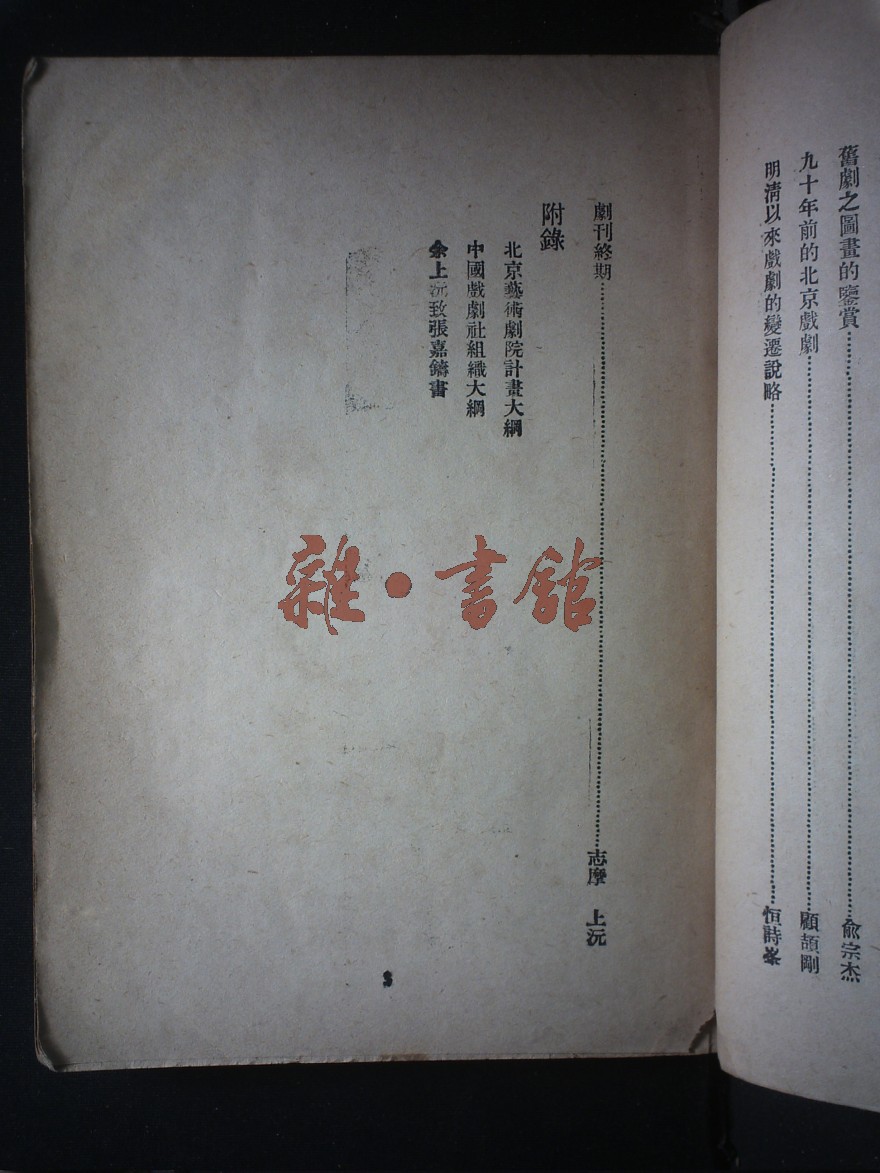 舊劇之圖畫的鑒賞……俞宗杰
九十年前的北京戲劇……顧頡剛
明清以來戲劇的變遷說略……恒詩峯
劇刊終期……志摩 上沅
附錄
北京藝術劇院計畫大綱
中國戲劇社組織大綱
余上沅致張嘉鑄書
3
雜·書館